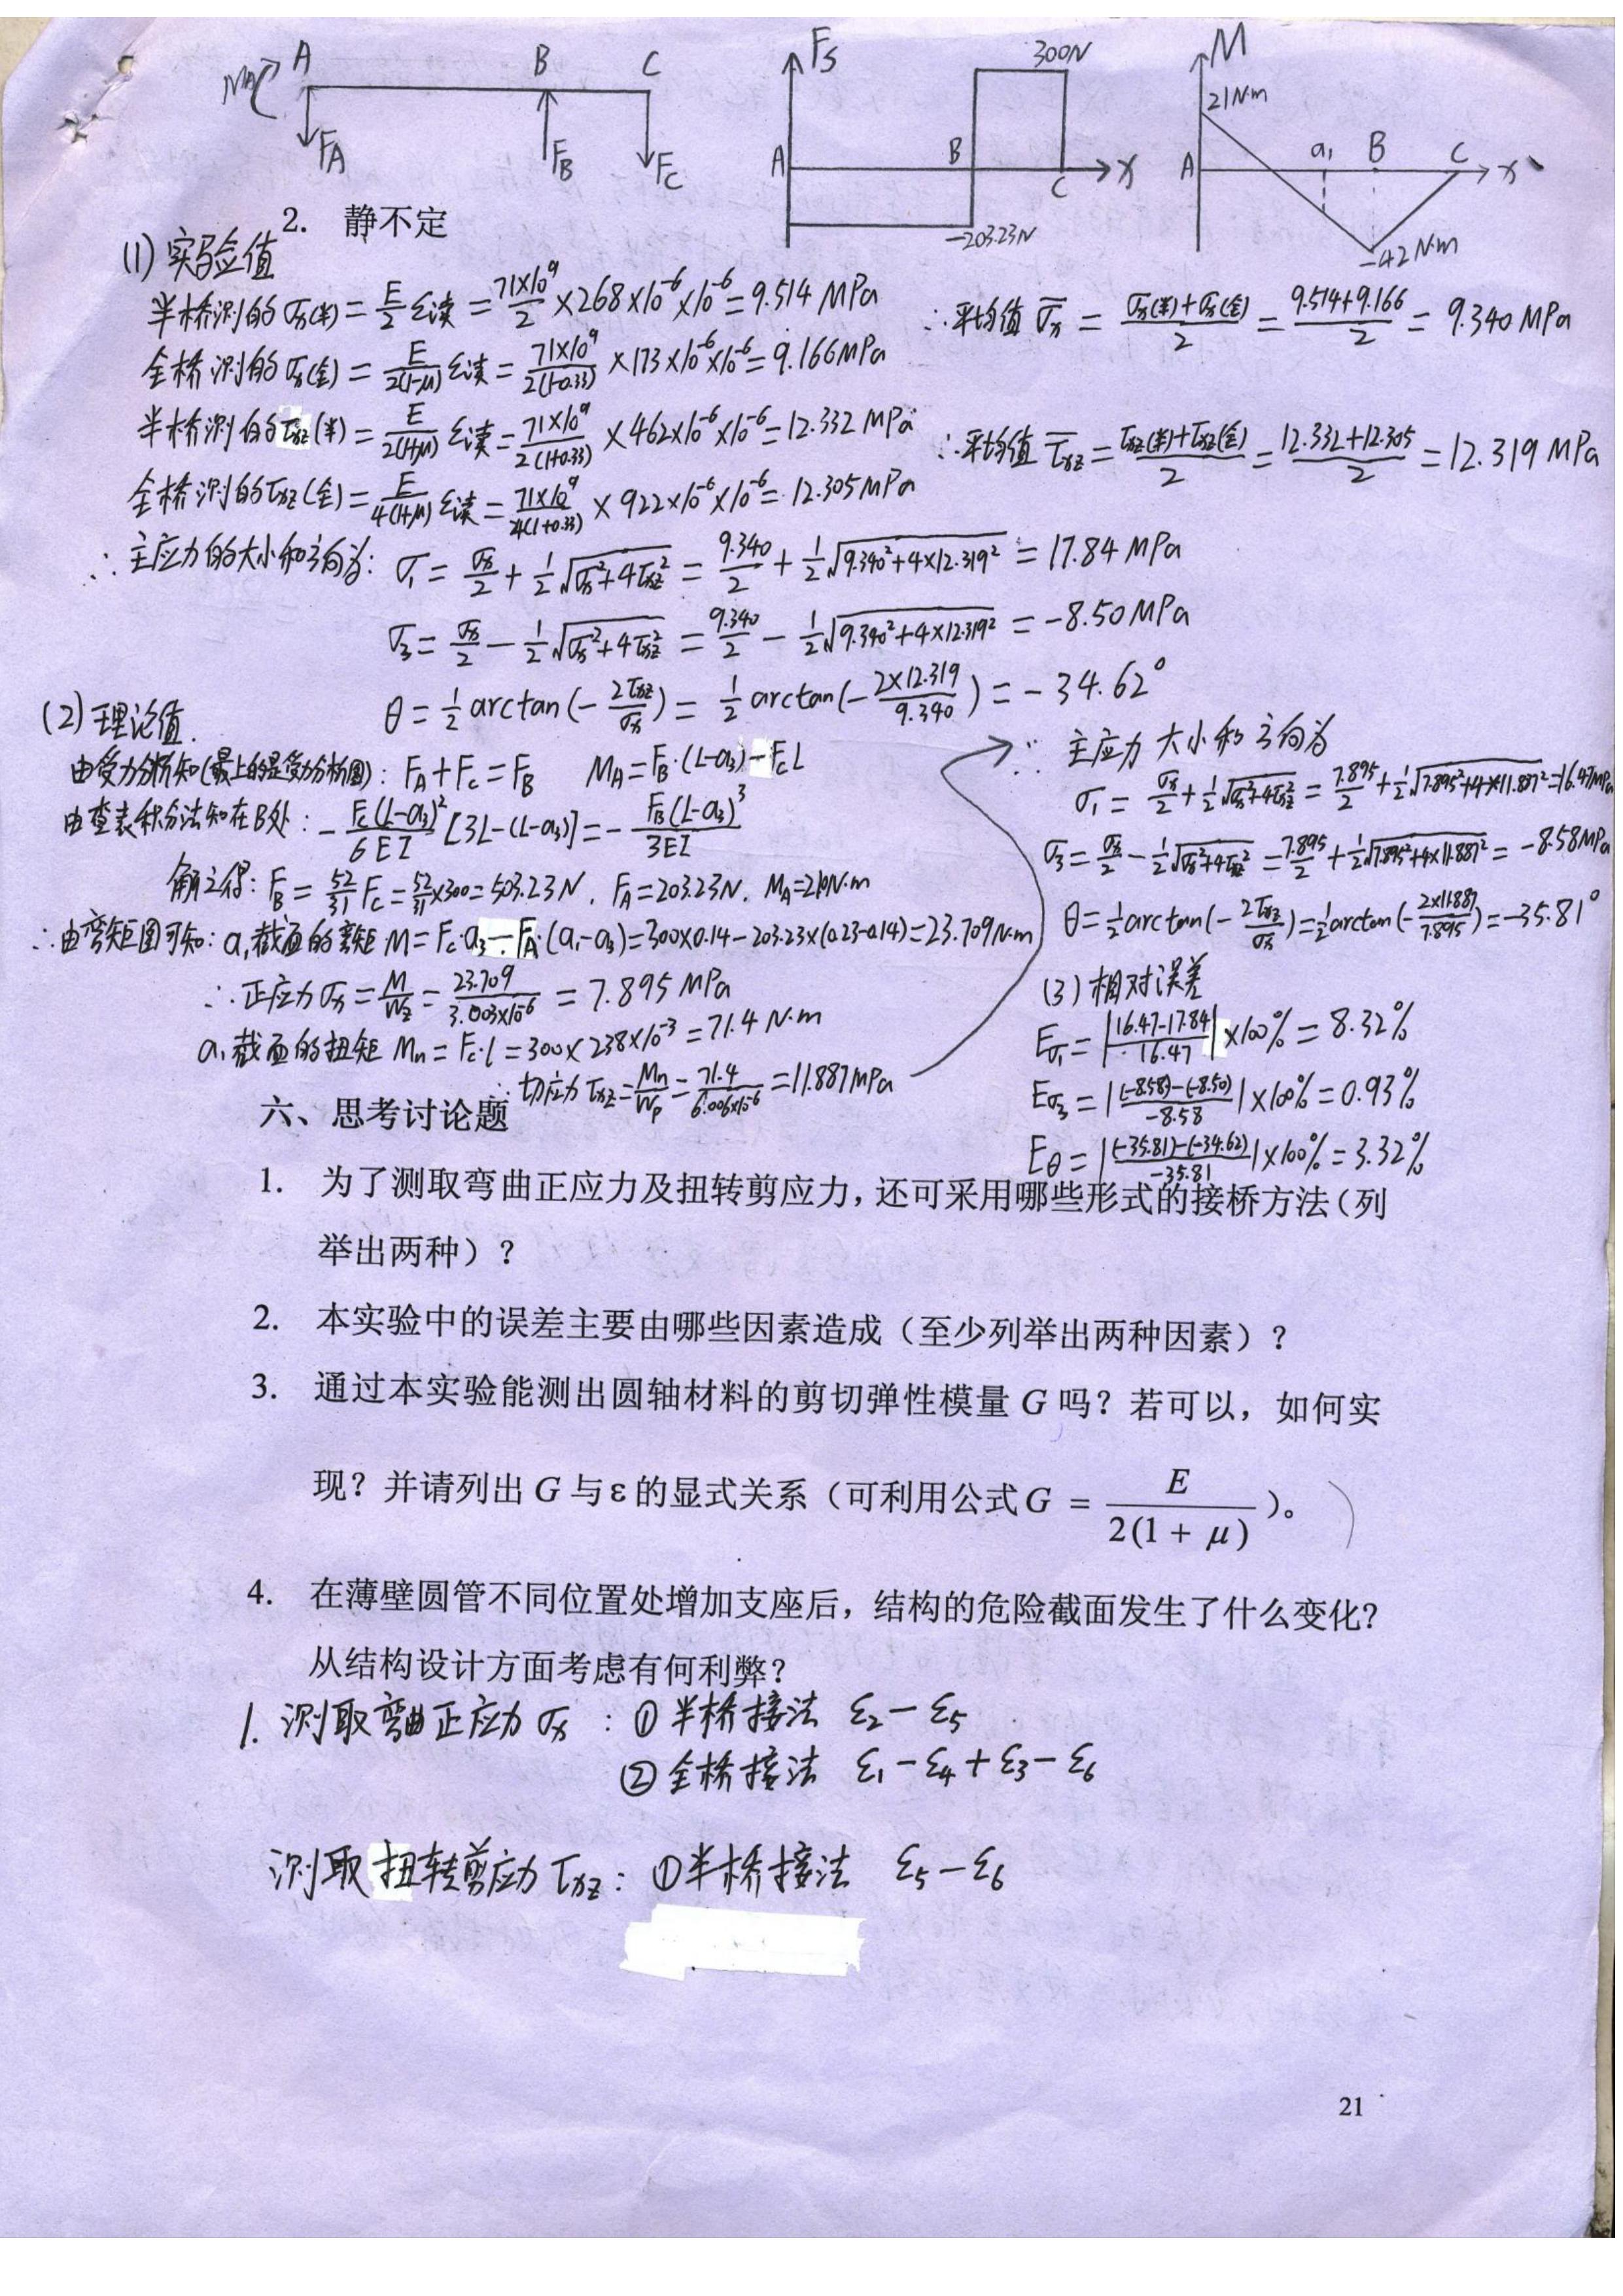 M_A A B C
F_A F_B F_C
F_S 300N
A B C x
-203.23N
M
21N·m
A a₁ B C x
-42N·m
2. 静不定
(1) 实验值
半桥测的σx(半) = E/2 ε读 = 71×10⁹/2 ×268×10⁻⁶×10⁻⁶ = 9.514 MPa
∴平均值 σ̄x = (σx(半)+σx(全))/2 = (9.514+9.166)/2 = 9.340 MPa
全桥测的σx(全) = E/2(1-μ) ε读 = 71×10⁹/2(1-0.33) ×173×10⁻⁶×10⁻⁶ = 9.166MPa
半桥测的τxz(半) = E/2(1+μ) ε读 = 71×10⁹/2(1+0.33) ×462×10⁻⁶×10⁻⁶ = 12.332 MPa
∴平均值 τ̄xz = (τxz(半)+τxz(全))/2 = (12.332+12.305)/2 = 12.319 MPa
全桥测的τxz(全) = E/4(1+μ) ε读 = 71×10⁹/4(1+0.33) ×922×10⁻⁶×10⁻⁶ = 12.305MPa
∴主应力的大小和方向为: σ₁ = σx/2 + 1/2 √(σx²+4τxz²) = 9.340/2 + 1/2 √(9.340²+4×12.319²) = 17.84 MPa
σ₃ = σx/2 - 1/2 √(σx²+4τxz²) = 9.340/2 - 1/2 √(9.340²+4×12.319²) = -8.50MPa
θ = 1/2 arctan(- 2τxz/σx) = 1/2 arctan(- 2×12.319/9.340) = -34.62°
(2) 理论值.
由受力分析知(最上的是受力分析图): F_A+F_C=F_B M_A=F_B·(L-a₃)-F_C L
由查表积分法知在B处: - F_C(L-a₃)²/6EI [3L-(L-a₃)] = - F_B(L-a₃)³/3EI
解之得: F_B = 52/31 F_C = 52/31 ×300 = 503.23N, F_A=203.23N, M_A=21N·m
∴由弯矩图可知: a₁截面的弯矩 M=F_C·a₃-F_A·(a₁-a₃)=300×0.14-203.23×(0.23-0.14)=23.709N·m
∴正应力σx = M/Wz = 23.709/3.003×10⁻⁶ = 7.895 MPa
a₁截面的扭矩 Mn = F_C·l = 300×238×10⁻³ = 71.4 N·m
∴切应力 τxz = Mn/Wp = 71.4/6.006×10⁻⁶ = 11.887MPa
∴ 主应力大小和方向为
σ₁ = σx/2 + 1/2 √(σx²+4τxz²) = 7.895/2 + 1/2 √(7.895²+4×11.887²) = 16.47MPa
σ₃ = σx/2 - 1/2 √(σx²+4τxz²) = 7.895/2 + 1/2 √(7.895²+4×11.887²) = -8.58MPa
θ = 1/2 arctan(- 2τxz/σx) = 1/2 arctan(- 2×11.887/7.895) = -35.81°
(3) 相对误差
Eσ₁ = |(16.47-17.84)/16.47| ×100% = 8.32%
Eσ₃ = |((-8.58)-(-8.50))/-8.58| ×100% = 0.93%
Eθ = |((-35.81)-(-34.62))/-35.81| ×100% = 3.32%
六、思考讨论题
1. 为了测取弯曲正应力及扭转剪应力，还可采用哪些形式的接桥方法（列
举出两种）？
2. 本实验中的误差主要由哪些因素造成（至少列举出两种因素）？
3. 通过本实验能测出圆轴材料的剪切弹性模量 G 吗？若可以，如何实
现？并请列出 G 与 ε 的显式关系（可利用公式 G = E/2(1 + μ)）。
4. 在薄壁圆管不同位置处增加支座后，结构的危险截面发生了什么变化？
从结构设计方面考虑有何利弊？
1. 测取弯曲正应力σx : ① 半桥接法 ε₂-ε₅
② 全桥接法 ε₁-ε₄+ε₃-ε₆
测取扭转剪应力 τxz: ①半桥接法 ε₅-ε₆
21